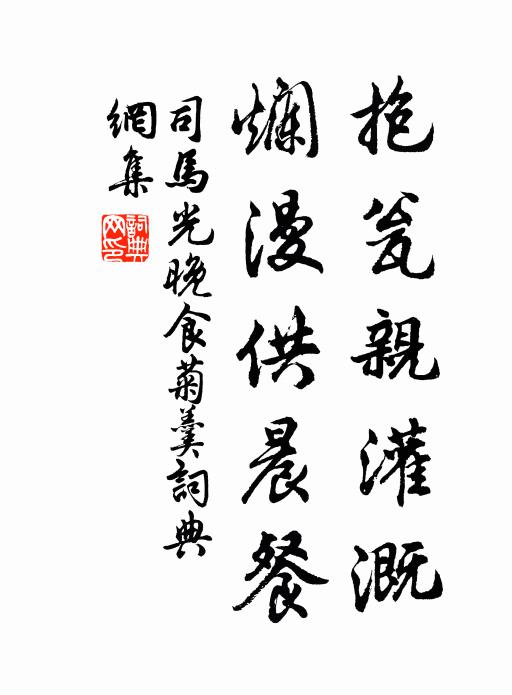 抱瓮親灌溉
爛漫供晨餐
司馬光晚食菊羹詞典
網集
詞典
网印